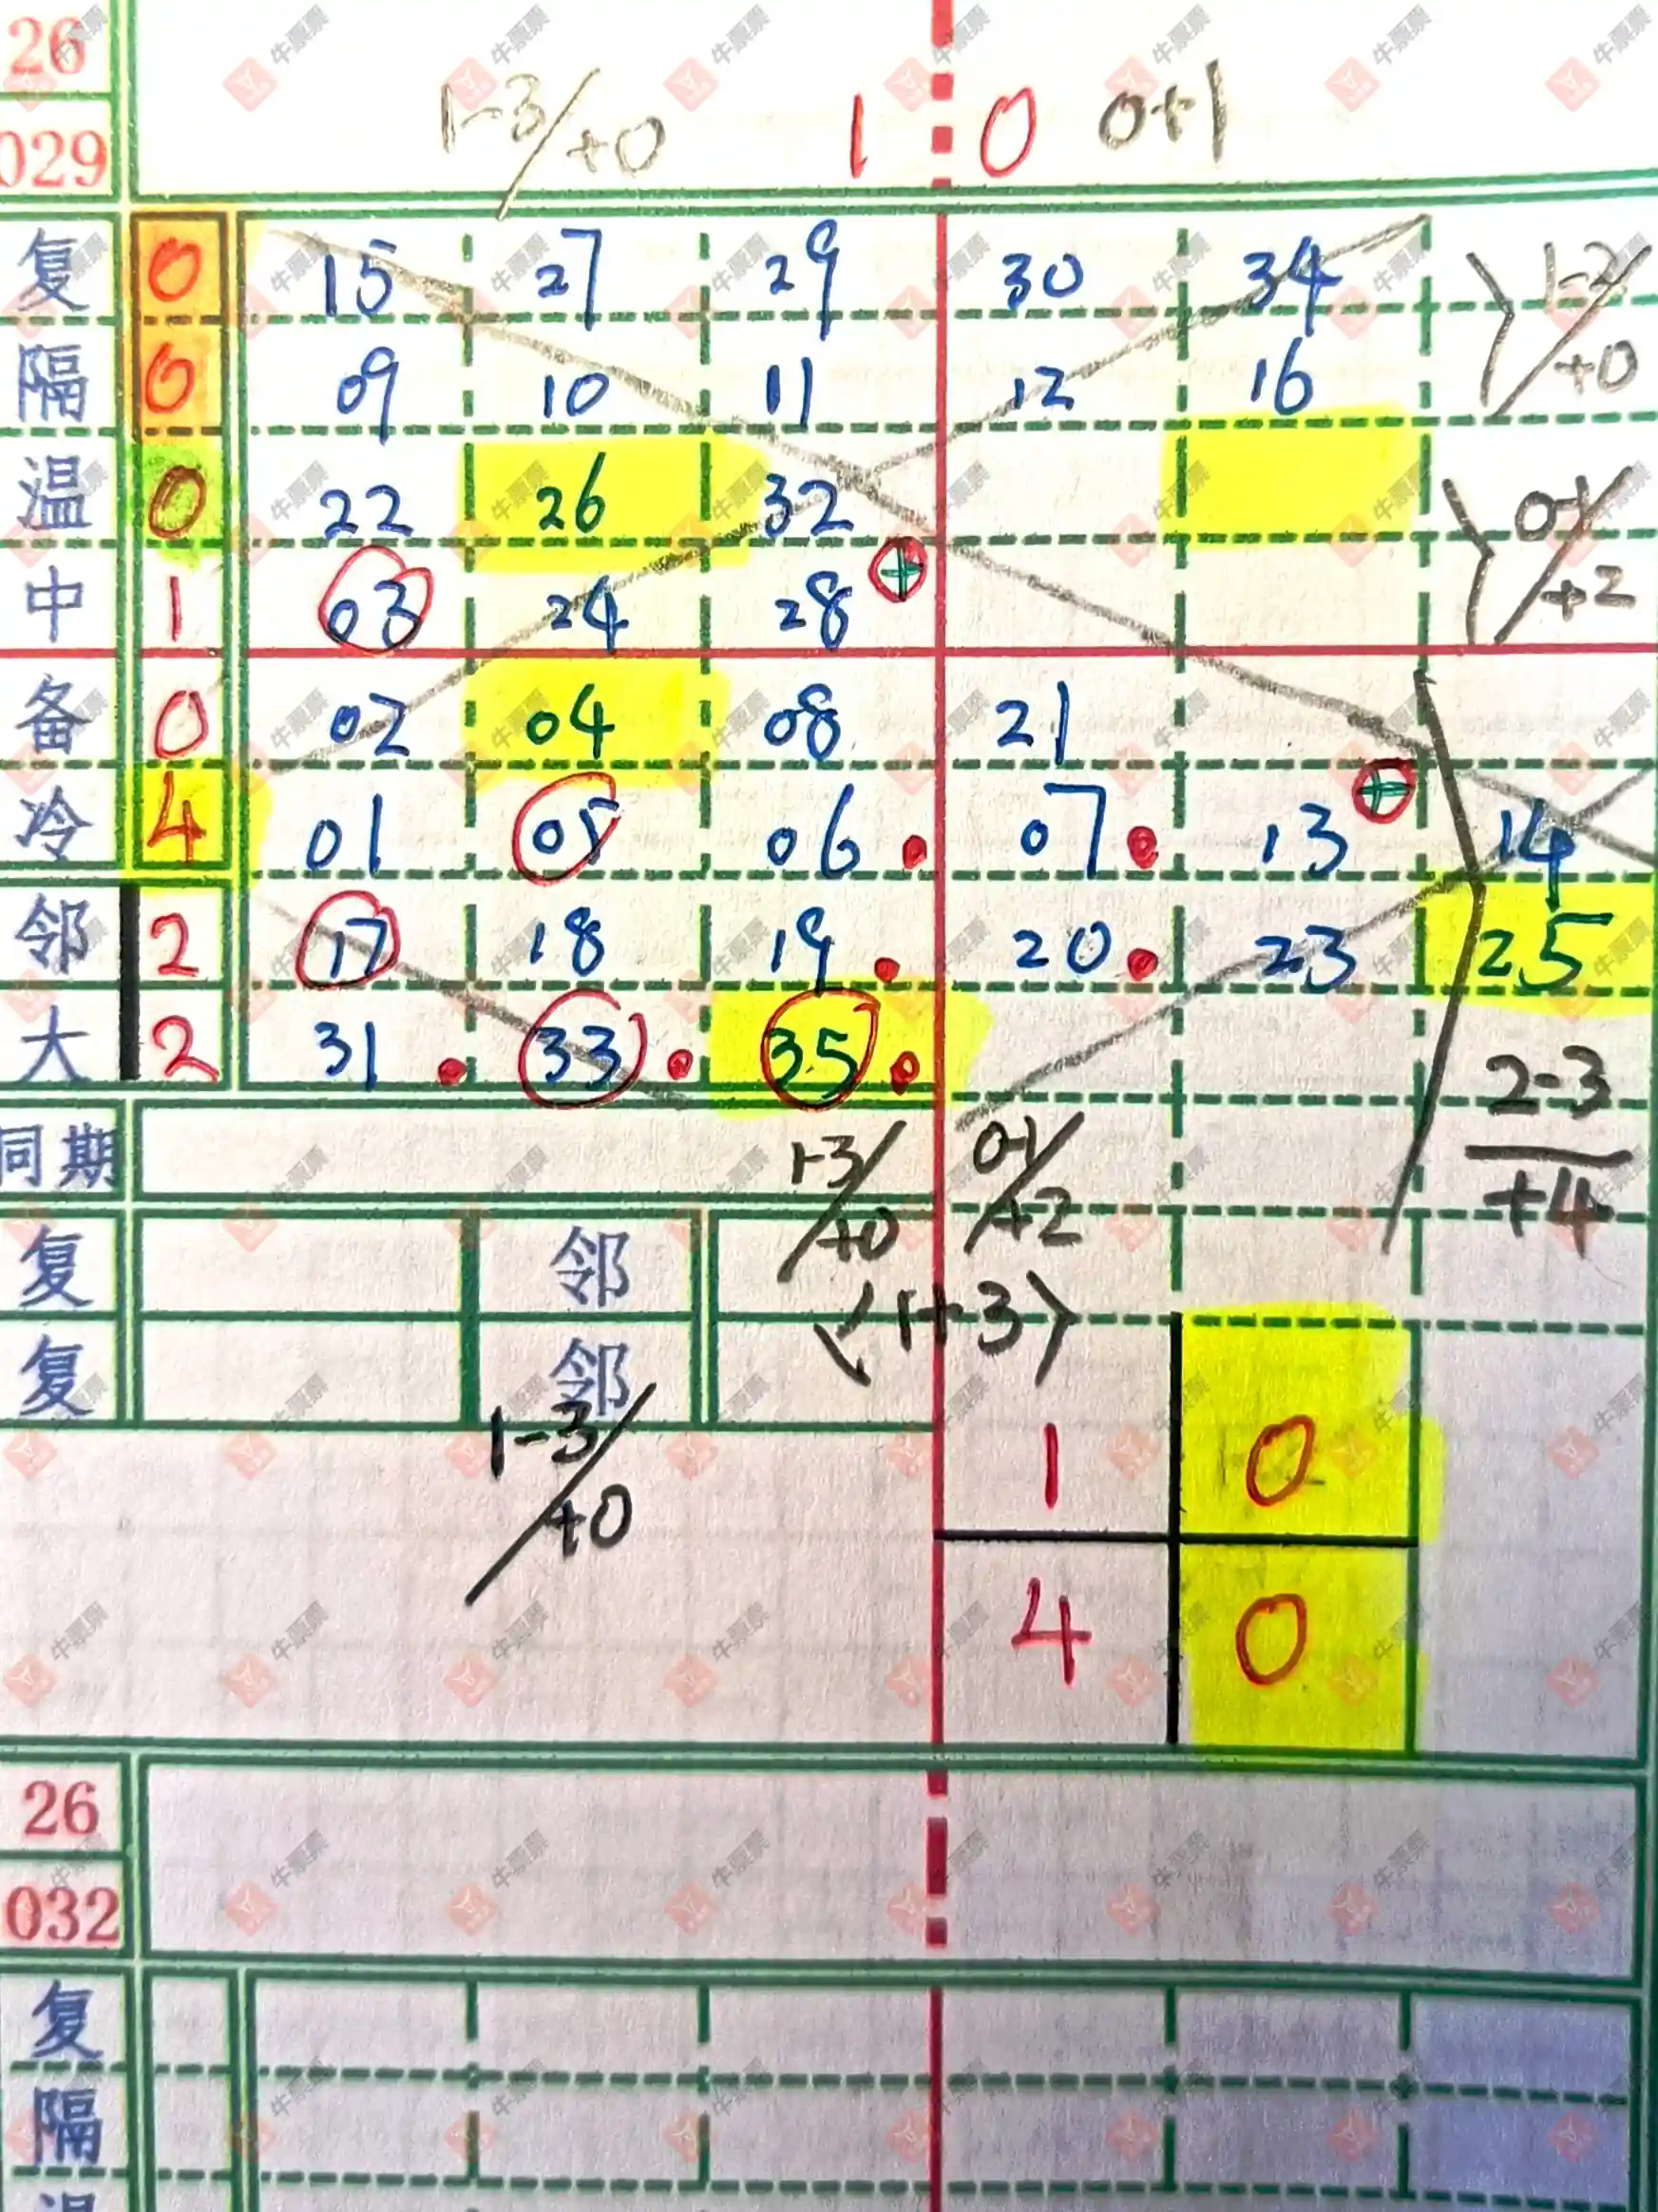 26
029 1-3/+0 1 0 0+1
复 0 15 27 29 30 34 1-2/+0
隔 0 09 10 11 12 16
温 0 22 26 32 0-1/+2
中 1 03 24 28
备 0 02 04 08 21
冷 4 01 05 06 07 13 14
邻 2 17 18 19 20 23 25
大 2 31 33 35 2-3/+4
同期 1-3/+0 0-1/+2
复 邻 (1+3)
复 邻
1-3/+0 1 0
4 0
26
032
复
隔
温
牛票票